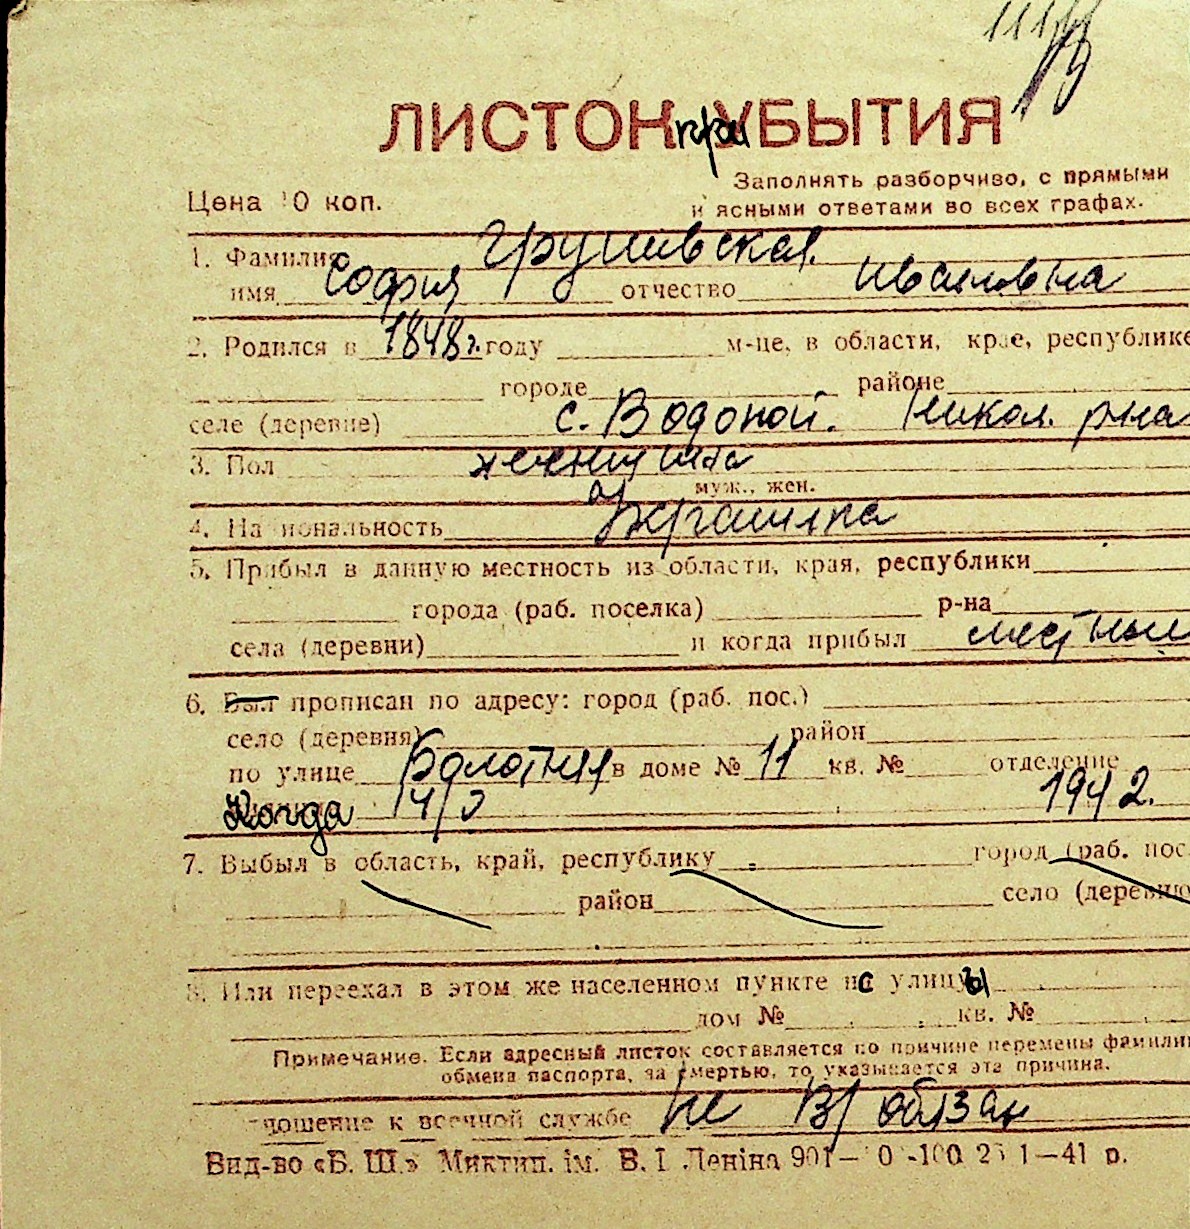 111
ЛИСТОК при УБЫТИЯ
Заполнять разборчиво, с прямыми
Цена 10 коп. и ясными ответами во всех графах.
1. Фамилия Грушевская
имя София отчество Ивановна
2. Родился в 1848 г. году м-це, в области, крае, республике
городе районе
селе (деревне) с. Водопой. Никол. р-на
3. Пол женщина
муж., жен.
4. Национальность Украинка
5. Прибыл в данную местность из области, края, республики
города (раб. поселка) р-на
села (деревни) и когда прибыл местный
6. Был прописан по адресу: город (раб. пос.)
село (деревня) район
по улице в доме № 11 кв. № отделение
Когда 1942.
7. Выбыл в область, край, республику город (раб. пос.
район село (деревню
8. Или переехал в этом же населенном пункте с улицы
дом № кв. №
Примечание. Если адресный листок составляется по причине перемены фамилии
обмена паспорта, за смертью, то указывается эта причина.
Отношение к военной службе не в/обязан
Вид-во «Б. Ш.» Миктип. ім. В. І Леніна 901— 0 -100 25 1—41 р.